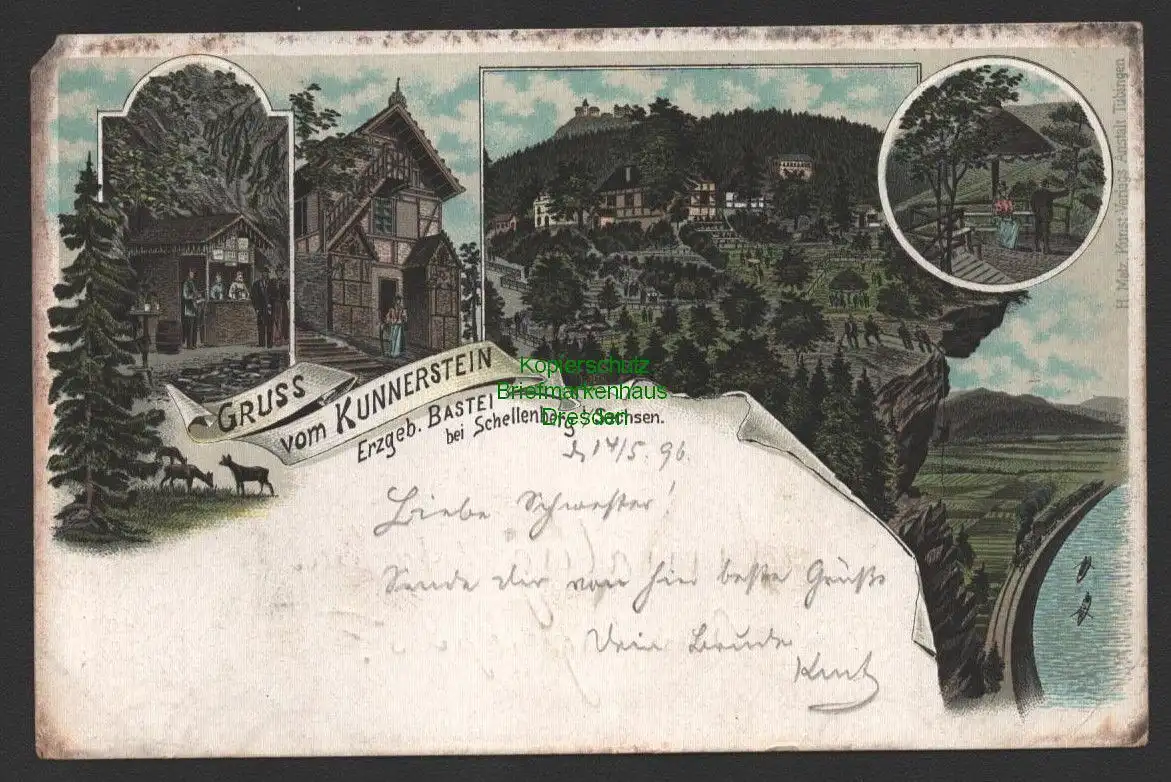 GRUSS
vom KUNNERSTEIN
Erzgeb. BASTEI
bei Schellenberg i. Sachsen.
Kopierschutz
Briefmarkenhaus
Dresden
H. Metz, Kunst-Verlags Anstalt Tübingen
d. 14/5. 96.
Liebe Schwester!
sende Dir von hier beste Grüße
Dein Bruder
Kurt